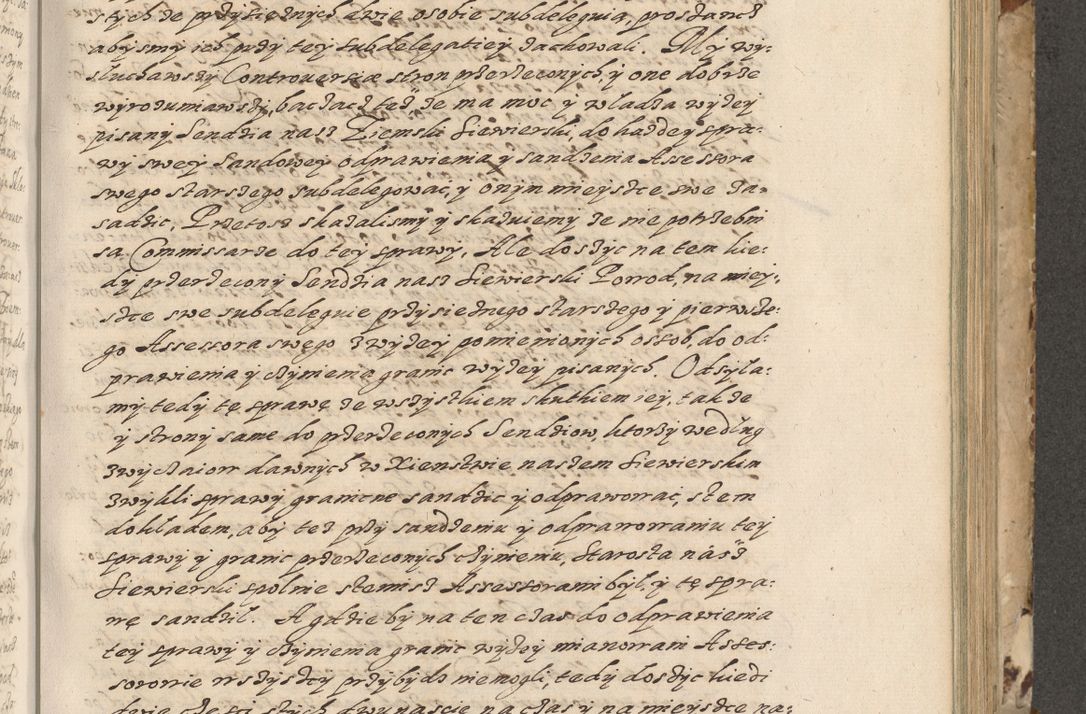 stych ze przysiężnych dwie osobie subdeleguią, prosżancz
abysmy ich przy tey subdelegatiey zachowali. My wy-
słuchawszy Controuersiæ stron przerzeconych, y one dobrze
wyrozumiawszy, bacząc też, że ma moc y władzą wyżey
pisany Sendzia nasz Ziemski Siewierski, do każdey spra-
wy swey Sandowey odprawienia y sandzenia Assessora
swego starszego subdelegować, y onym mieysce swe za-
sadzić, Przetosz skazalismy y skazuiemy że nie potrzebni
są Commissarze do tey sprawy, Ale dosżyc na ten kie-
dy przerzecony Sendzia nasz Siewierski Porrod, na miey-
sce swe subdeleguie przysiężnego starszego y pierwsze-
go Assessora swego z wyżey pomnienionych osob, do od-
prawienia y czynienia granic wyżey pisanych. Odsyła-
my tedy tę sprawę ze wszystkiem skutkiem iey, także
y strony same do przerzeconych Sendziow, ktorzy według
zwyczaiow dawnych w Xienstwie naszem Siewierskim
zwykli sprawy graniczne sandzic y odprawować, stem
dokładem, aby też przy sandzeniu y odprawowaniu tey
sprawy y granic przerzeconych czynieniu, Starosta nász
Siewierski spolnie stemisz Assessorami był, y tę spra-
wę sandził. A gdzieby na ten czas do odprawienia
tey sprawy y czynienia granic wyżey mianowani Asses-
sorowie wszyscy przybydz niemogli, tedy dosżyc kiedi